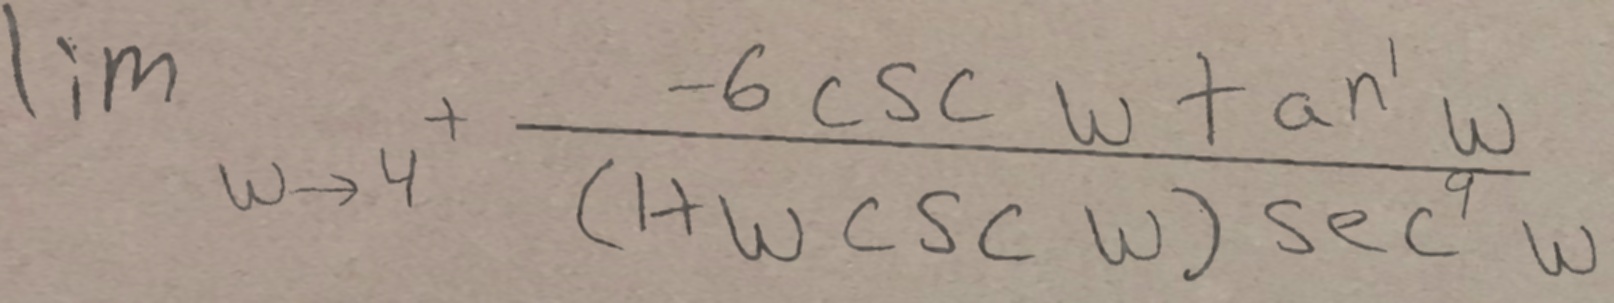 \lim_{w \to 4^+} \frac{-6 \csc w \tan^1 w}{(1 + w \csc w) \sec^9 w}